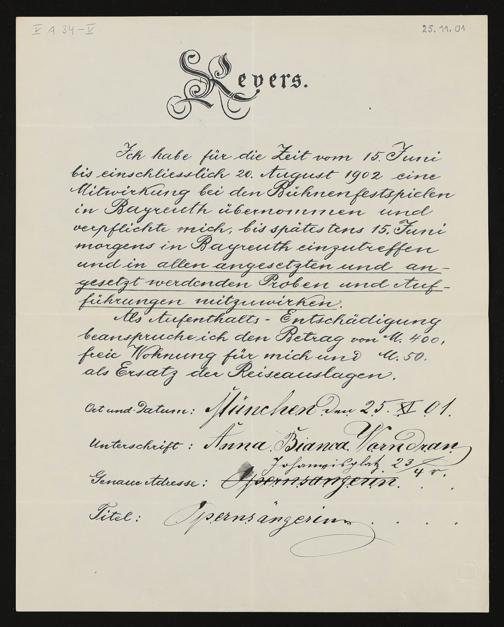 V A 34-V
25.11.01
Revers.
Ich habe für die Zeit vom 15. Juni
bis einschliesslich 20. August 1902 eine
Mitwirkung bei den Bühnenfestspielen
in Bayreuth übernommen und
verpflichte mich, bis spätestens 15. Juni
morgens in Bayreuth einzutreffen
und in allen angesetzten und an-
gesetzt werdenden Proben und Auf-
führungen mitzuwirken.
Als Aufenthalts-Entschädigung
beanspruche ich den Betrag von M. 400,
freie Wohnung für mich und M. 50.
als Ersatz der Reiseauslagen.
Ort und Datum: München den 25. XI 01.
Unterschrift: Anna Bianca Vorndran
23/4 r.
Genaue Adresse: Opernsängerin
Titel: Opernsängerin